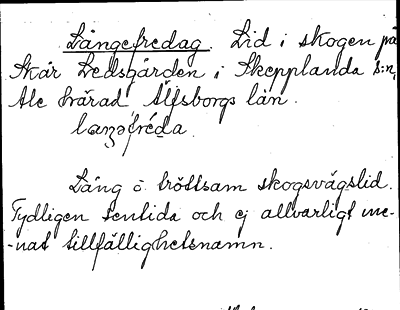 Långefredag. Lid i skogen på
Skår Ledsgården i Skepplanda s:n,
Ale härad Älfsborgs län.
laŋəfréda.
Lång o tröttsam skogsvägslid.
Tydligen sentida och ej allvarligt me-
-nat tillfällighetsnamn.